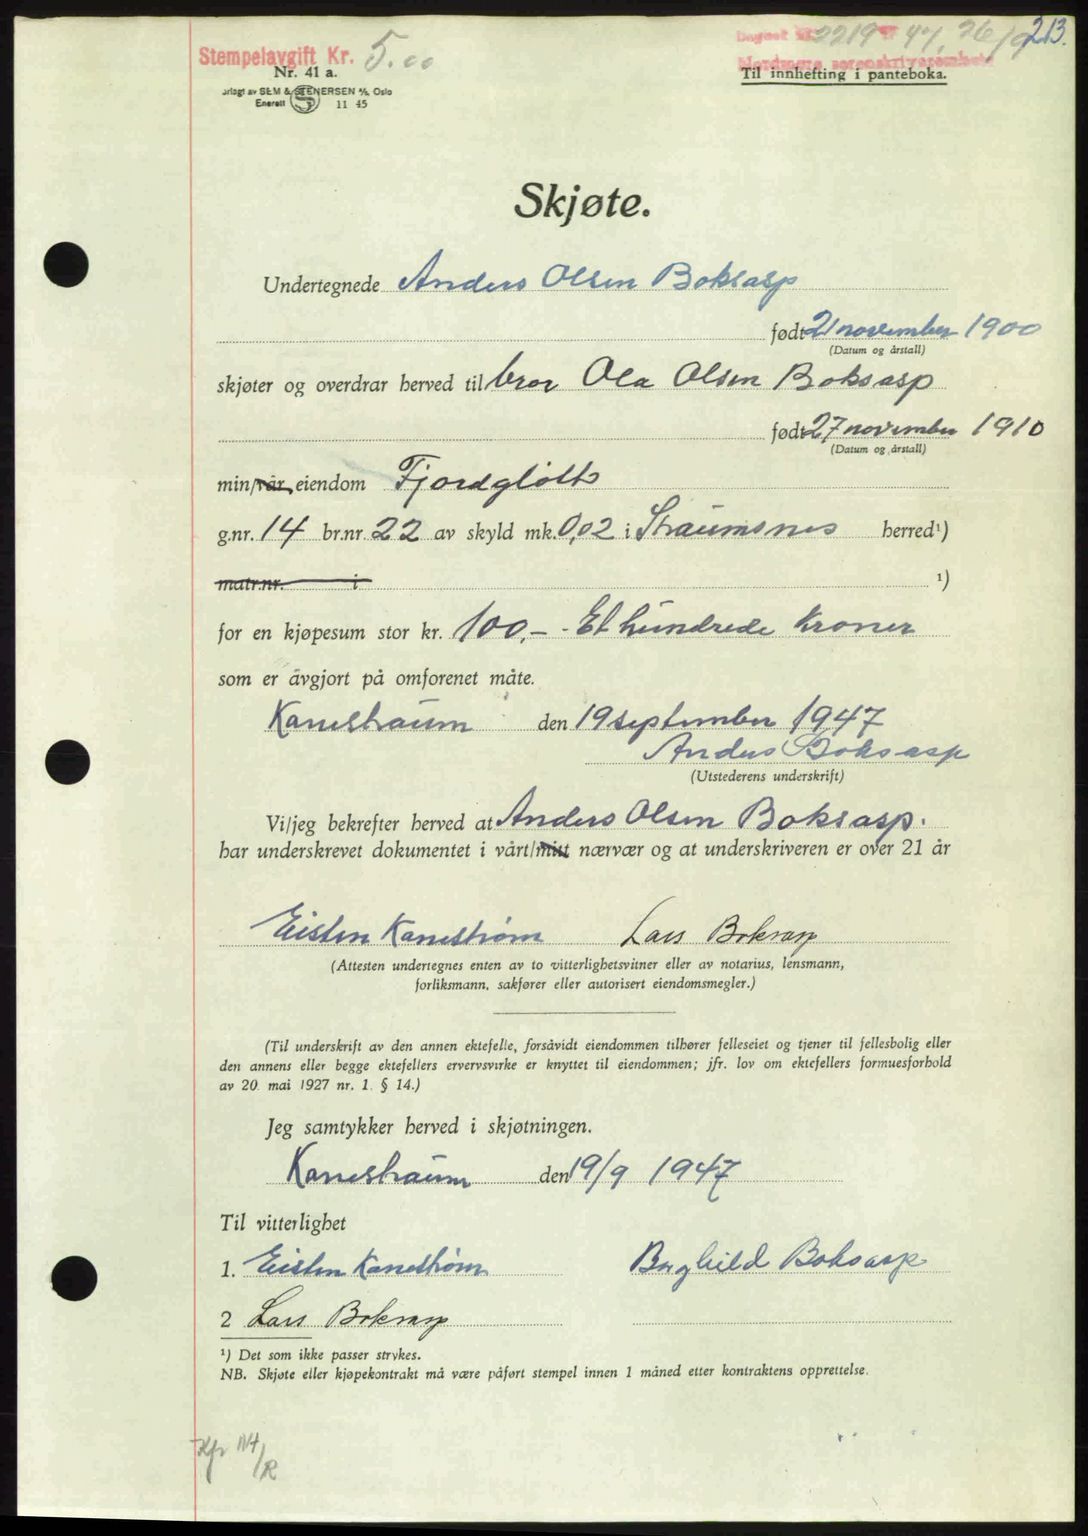 213.
Stempelavgift Kr. 5.00
Dagbok nr. 2219 47, 26/9
Nordmøre sorenskriverembete
Nr. 41 a.
Til innhefting i panteboka.
orlagt av SEM & STENERSEN A/S, Oslo
Enerett S 11 45
Skjøte.
Undertegnede Anders Olsen Boksasp
født 21 november 1900
(Datum og årstall)
skjøter og overdrar herved til bror Ola Olsen Boksasp
født 27 november 1910
(Datum og årstall)
min/vår eiendom Fjordgløtt
g.nr. 14 br.nr. 22 av skyld mk. 0,02 i Straumsnes herred¹)
matr.nr. i ¹)
for en kjøpesum stor kr. 100,- - Et hundrede Kroner
som er avgjort på omforenet måte.
Kanestraum den 19 september 1947
Anders Boksasp
(Utstederens underskrift)
Vi/jeg bekrefter herved at Anders Olsen Boksasp.
har underskrevet dokumentet i vårt/mitt nærvær og at underskriveren er over 21 år
Eisten Kanestrøm Lars Boksasp
(Attesten undertegnes enten av to vitterlighetsvitner eller av notarius, lensmann,
forliksmann, sakfører eller autorisert eiendomsmegler.)
(Til underskrift av den annen ektefelle, forsåvidt eiendommen tilhører felleseiet og tjener til fellesbolig eller
den annens eller begge ektefellers ervervsvirke er knyttet til eiendommen; jfr. lov om ektefellers formuesforhold
av 20. mai 1927 nr. 1. § 14.)
Jeg samtykker herved i skjøtningen.
Kanestraum den 19/9 1947
Til vitterlighet
1. Eisten Kanestrøm Borghild Boksasp
2 Lars Boksasp
¹) Det som ikke passer strykes.
NB. Skjøte eller kjøpekontrakt må være påført stempel innen 1 måned etter kontraktens opprettelse.